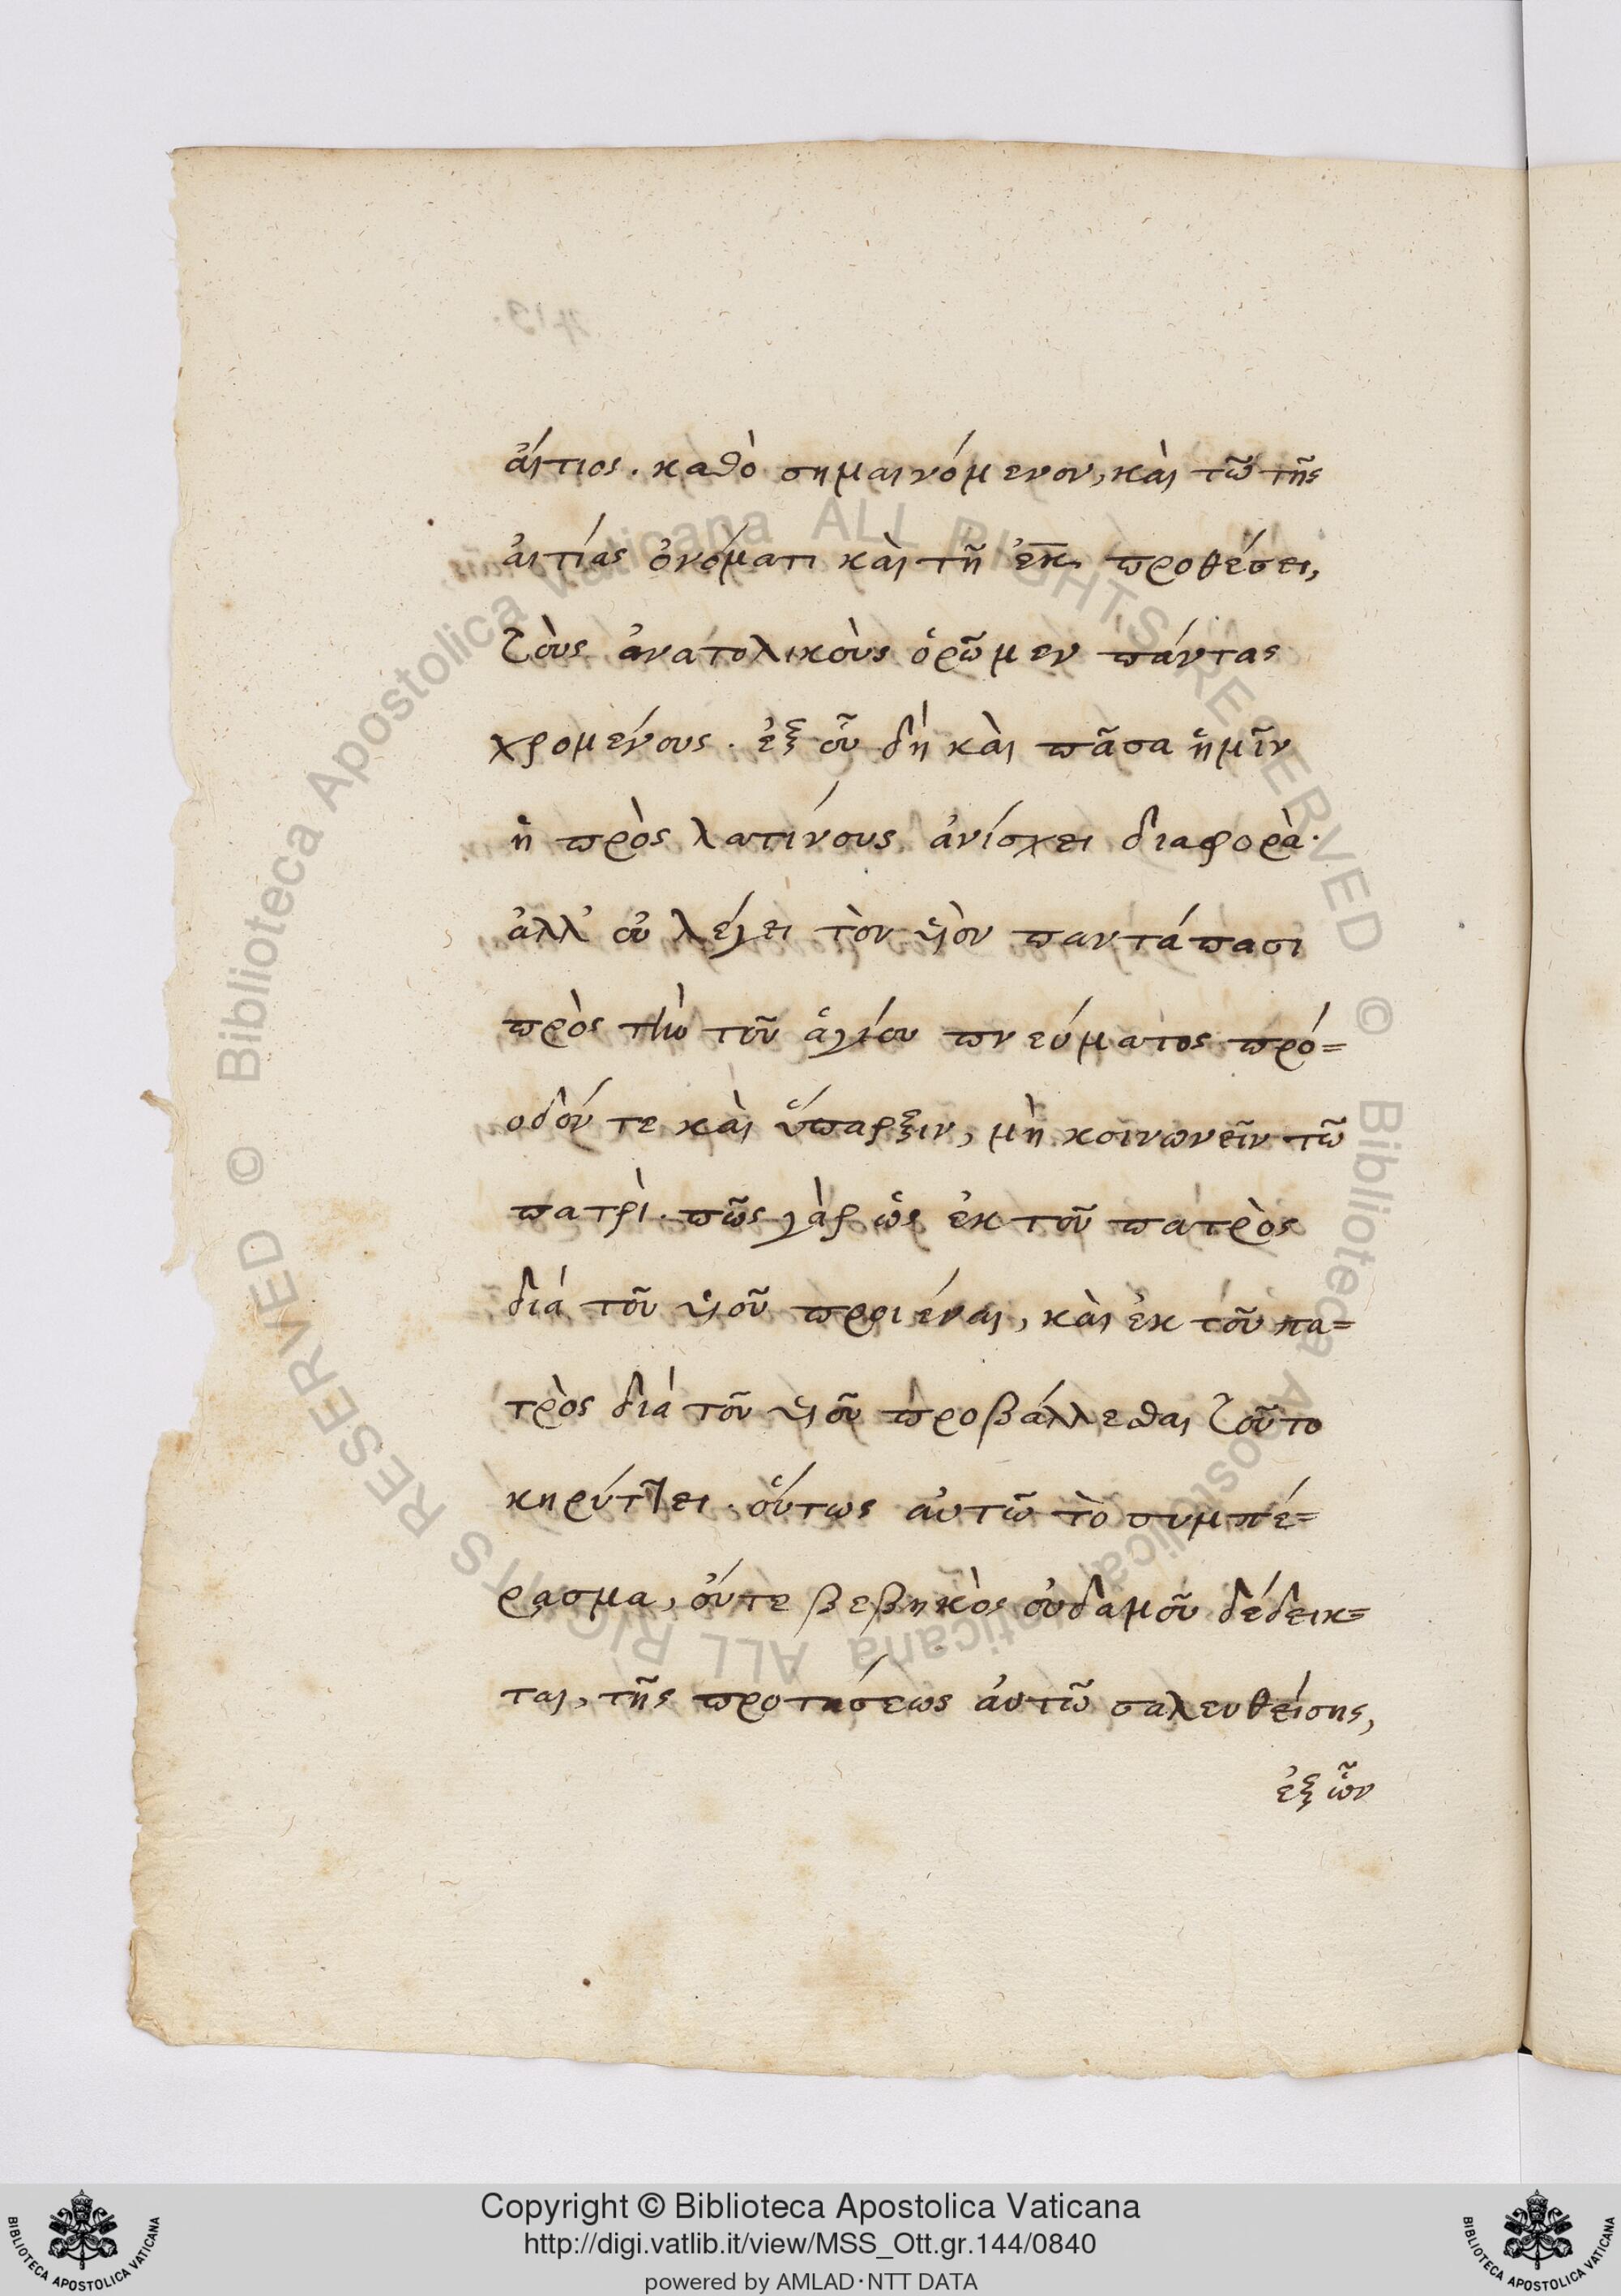 ἄιτιος. καθὸ σημαινόμενον, κὰι τῶ τῆς
ἀιτίας ὀνόματι κὰι τῆ ἐκ προθέσει,
τοὺς ἀνατολικοὺς ὁρῶμεν πάντας
χρομένους. ἐξ οὗ δὴ κὰι πᾶσα ἡμῖν
ἡ πρὸς λατίνους ἀνίσχει διαφορὰ.
ἀλλ' οὐ λέγει τὸν ὑιὸν παντάπασι
πρὸς τὴν τοῦ ἁγίου πνεύματος πρό=
οδόν τε κὰι ὕπαρξιν, μὴ κοινωνεῖν τῶ
πατρὶ. πῶς γὰρ ὡς ἐκ τοῦ πατρὸς
διά τοῦ ὑιοῦ προιέναι, κὰι ἐκ τοῦ πα=
τρὸς διά τοῦ ὑιοῦ προβάλλεσθαι τοῦτο
κηρύττει. οὕτως ἀυτῶ τὸ συμπέ=
ρασμα, οὔτε βεβηκὸς οὐδαμοῦ δέδεικ=
ται, τῆς προτάσεως ἀυτῶ σαλευθείσης,
ἐξ ὧν
Copyright © Biblioteca Apostolica Vaticana
http://digi.vatlib.it/view/MSS_Ott.gr.144/0840
powered by AMLAD·NTT DATA
BIBLIOTECA APOSTOLICA VATICANA
BIBLIOTECA APOSTOLICA VATICANA
© Biblioteca Apostolica Vaticana ALL RIGHTS RESERVED
© Biblioteca Apostolica Vaticana ALL RIGHTS RESERVED